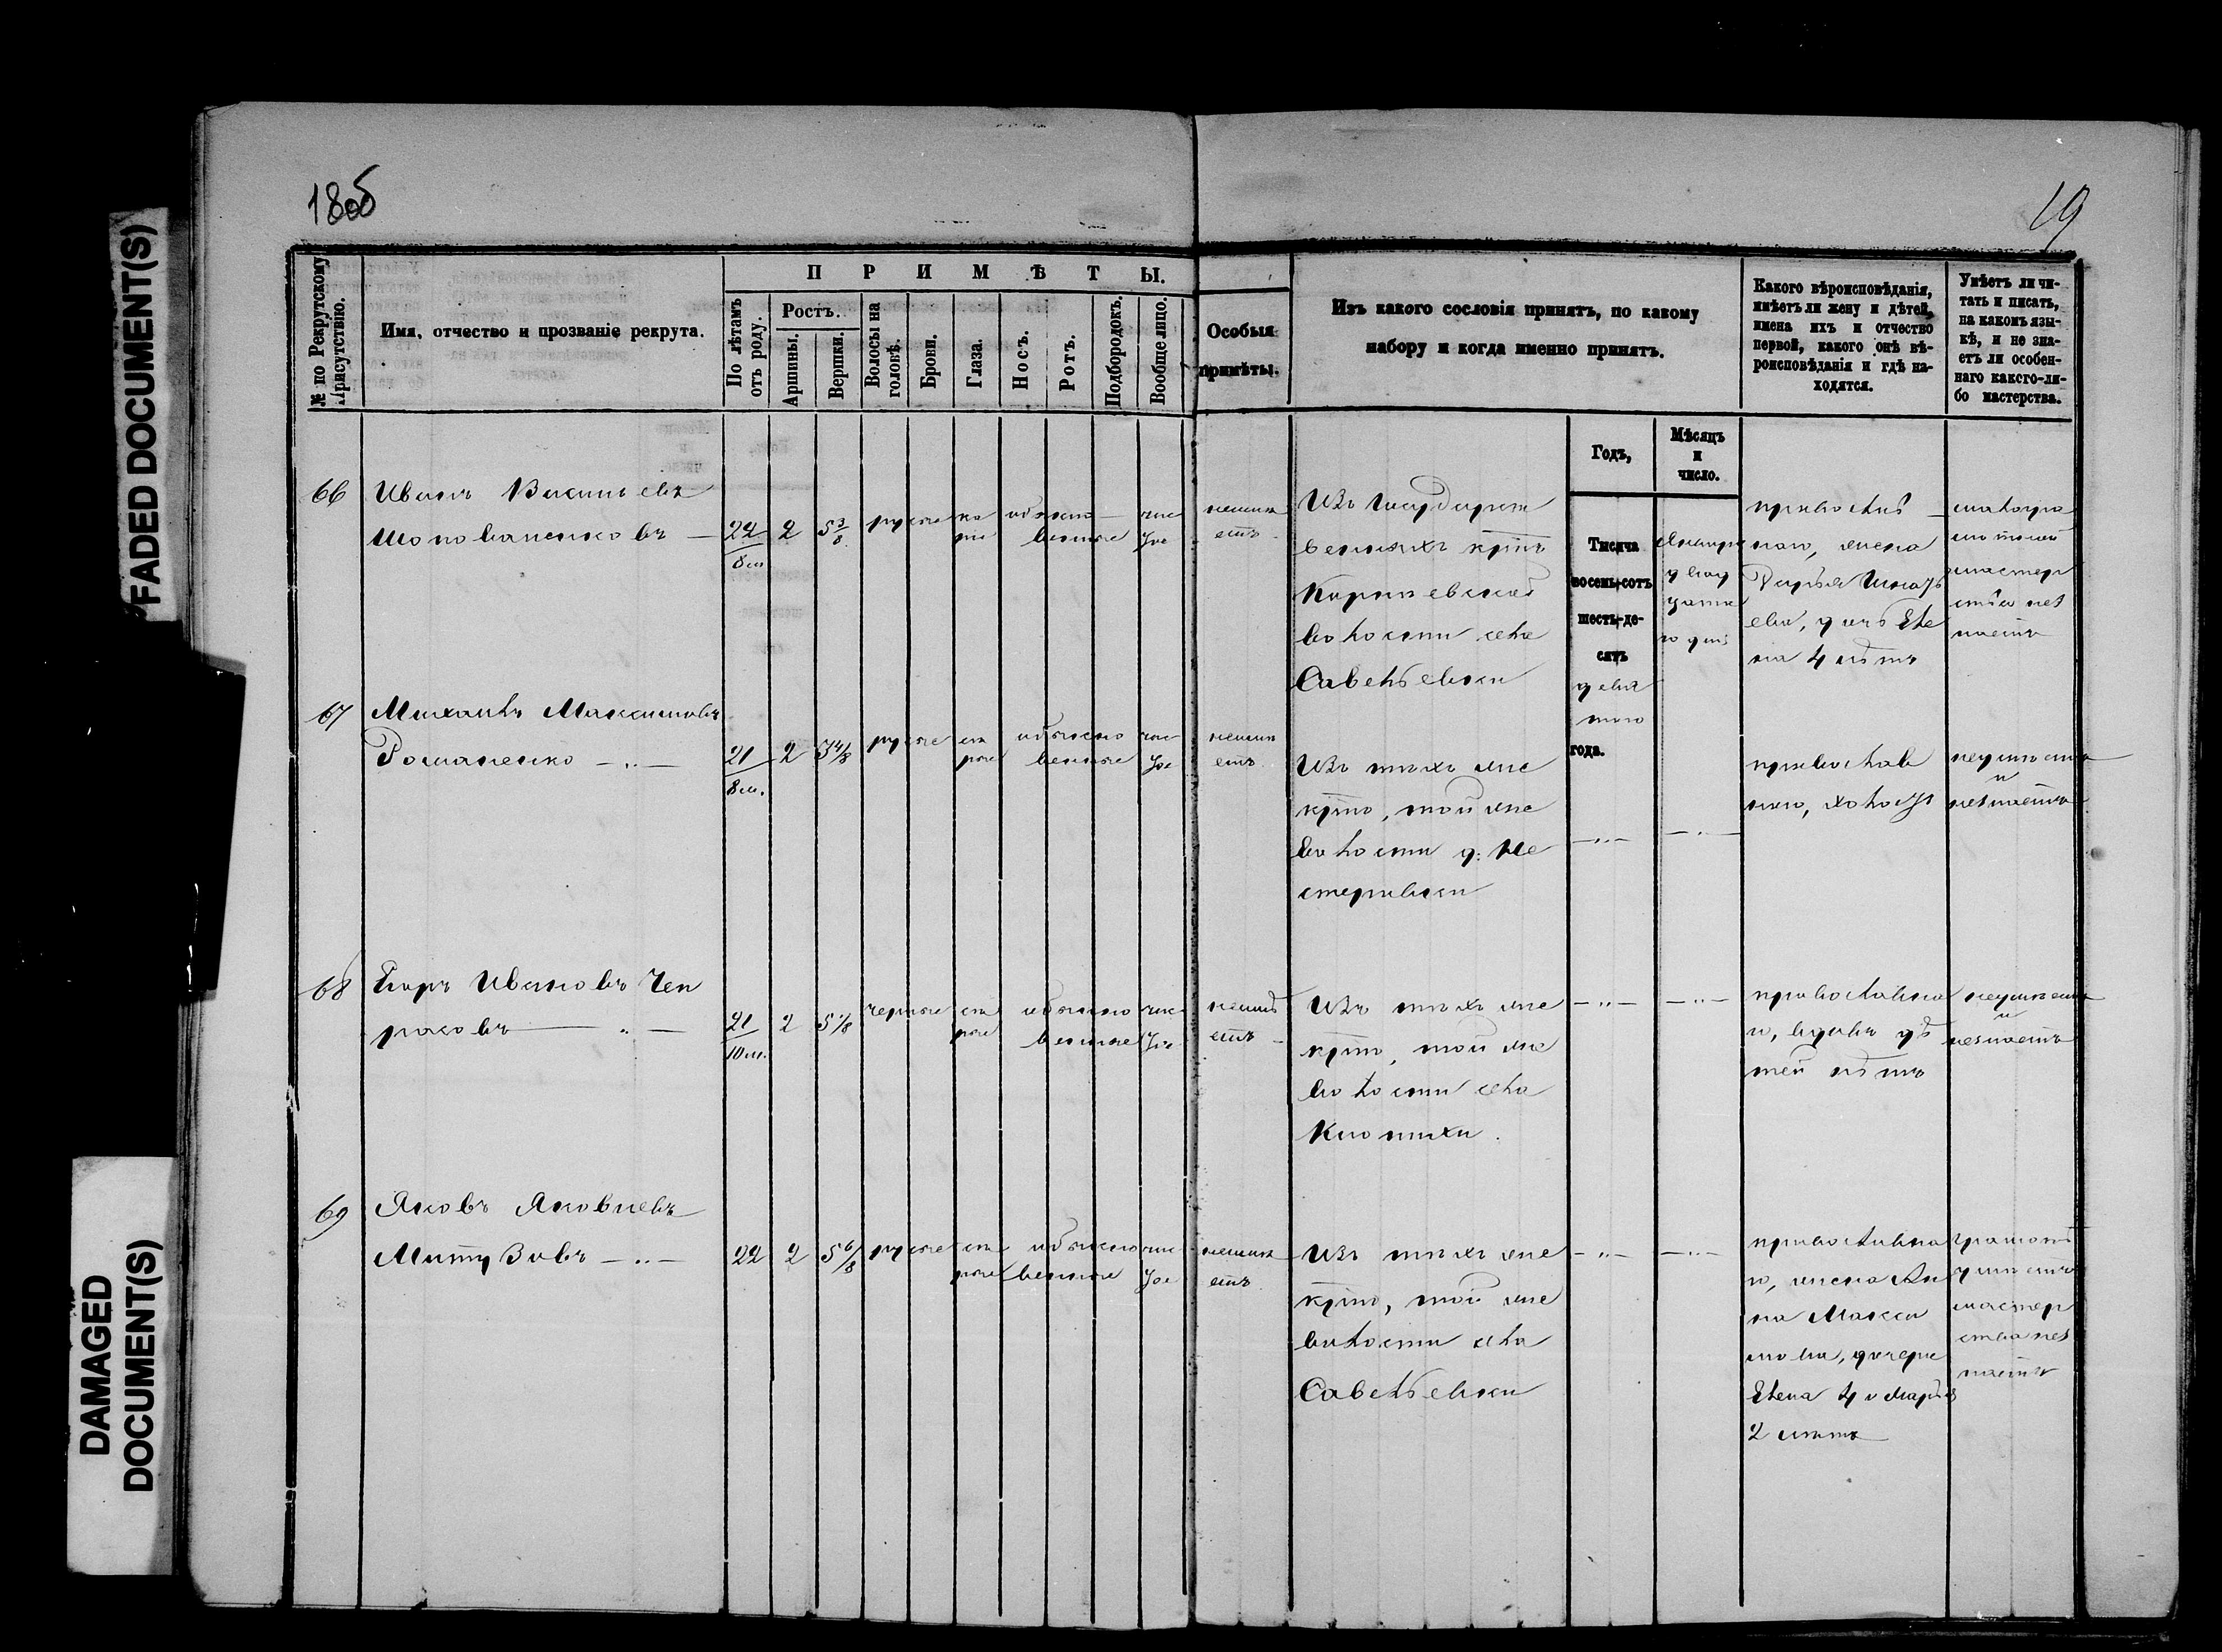 FADED DOCUMENT(S)
DAMAGED
DOCUMENT(S)
18об
19
№ по Рекрутскому
Присутствію.
Имя, отчество и прозваніе рекрута.
ПРИМѢТЫ.
По лѣтамъ
отъ роду.
Ростъ.
Аршины.
Вершки.
Волосы на
головѣ.
Брови.
Глаза.
Носъ.
Ротъ.
Подбородокъ.
Вообще лицо.
Особыя
примѣты.
Изъ какого сословія принятъ, по какому
набору и когда именно принятъ.
Какого вѣроисповѣданія,
имѣетъ ли жену и дѣтей,
имена ихъ и отчество
первой, какого онѣ вѣ-
роисповѣданія и гдѣ на-
ходятся.
Умѣетъ ли чи-
тать и писать,
на какомъ язы-
кѣ, и не зна-
етъ ли особен-
наго какого-ли-
бо мастерства.
Годъ,
Мѣсяцъ
и
число.
66
Иванъ Васильевъ
Шоповаленковъ —
22
8 м
2
5 3/8
русые
ка
ріе
обыкно
венные
чис
тое
неимѣ
етъ
Изъ Государст
венныхъ крт̃ъ
волости села
Савельевки
Тысяча
восемь-сотъ
шесть-де-
сятъ
девя
таго
года.
Января
двад
цата
го дня
православ
наго, жена
Дарья Игнать
ева, дочь Еле
на 4 лѣтъ
малогра
мотной
мастер
ства нез
наетъ
67
Михаилъ Максимовъ
Романенко —„—
21
8 м.
2
3 4/8
русые
сѣ
рые
обыкно
венные
чис
тое
неимѣ
етъ
Изъ тѣхъ же
крт̃ъ, той же
волости д: Не
стеровки
—„—
—„—
православ
наго, холостъ
неумѣетъ
и
незнаетъ
68
Егоръ Ивановъ Чеп
раковъ — „ —
21
10 м.
2
5 1/8
черные
сѣ
рые
обыкно
венные
чис
тое
неимѣ
етъ
Изъ тѣхъ же
крт̃ъ, той же
волости села
Киотихи.
—„—
—„—
православна
го, вдовъ дѣ
тей нѣтъ
неумѣетъ
и
незнаетъ
69
Яковъ Яковлевъ
Митузовъ —„—
22
2
5 6/8
русые
сѣ
рые
обыкно
венные
чис
тое
неимѣ
етъ
Изъ тѣхъ же
крт̃ъ, той же
волости села
Савельевки
—„—
—„—
православна
го, жена Ан
на Макси
мова, дочери
Елена 4 и Марья
2 лѣтъ
грамотѣ
умѣетъ
мастер
ства нез
наетъ